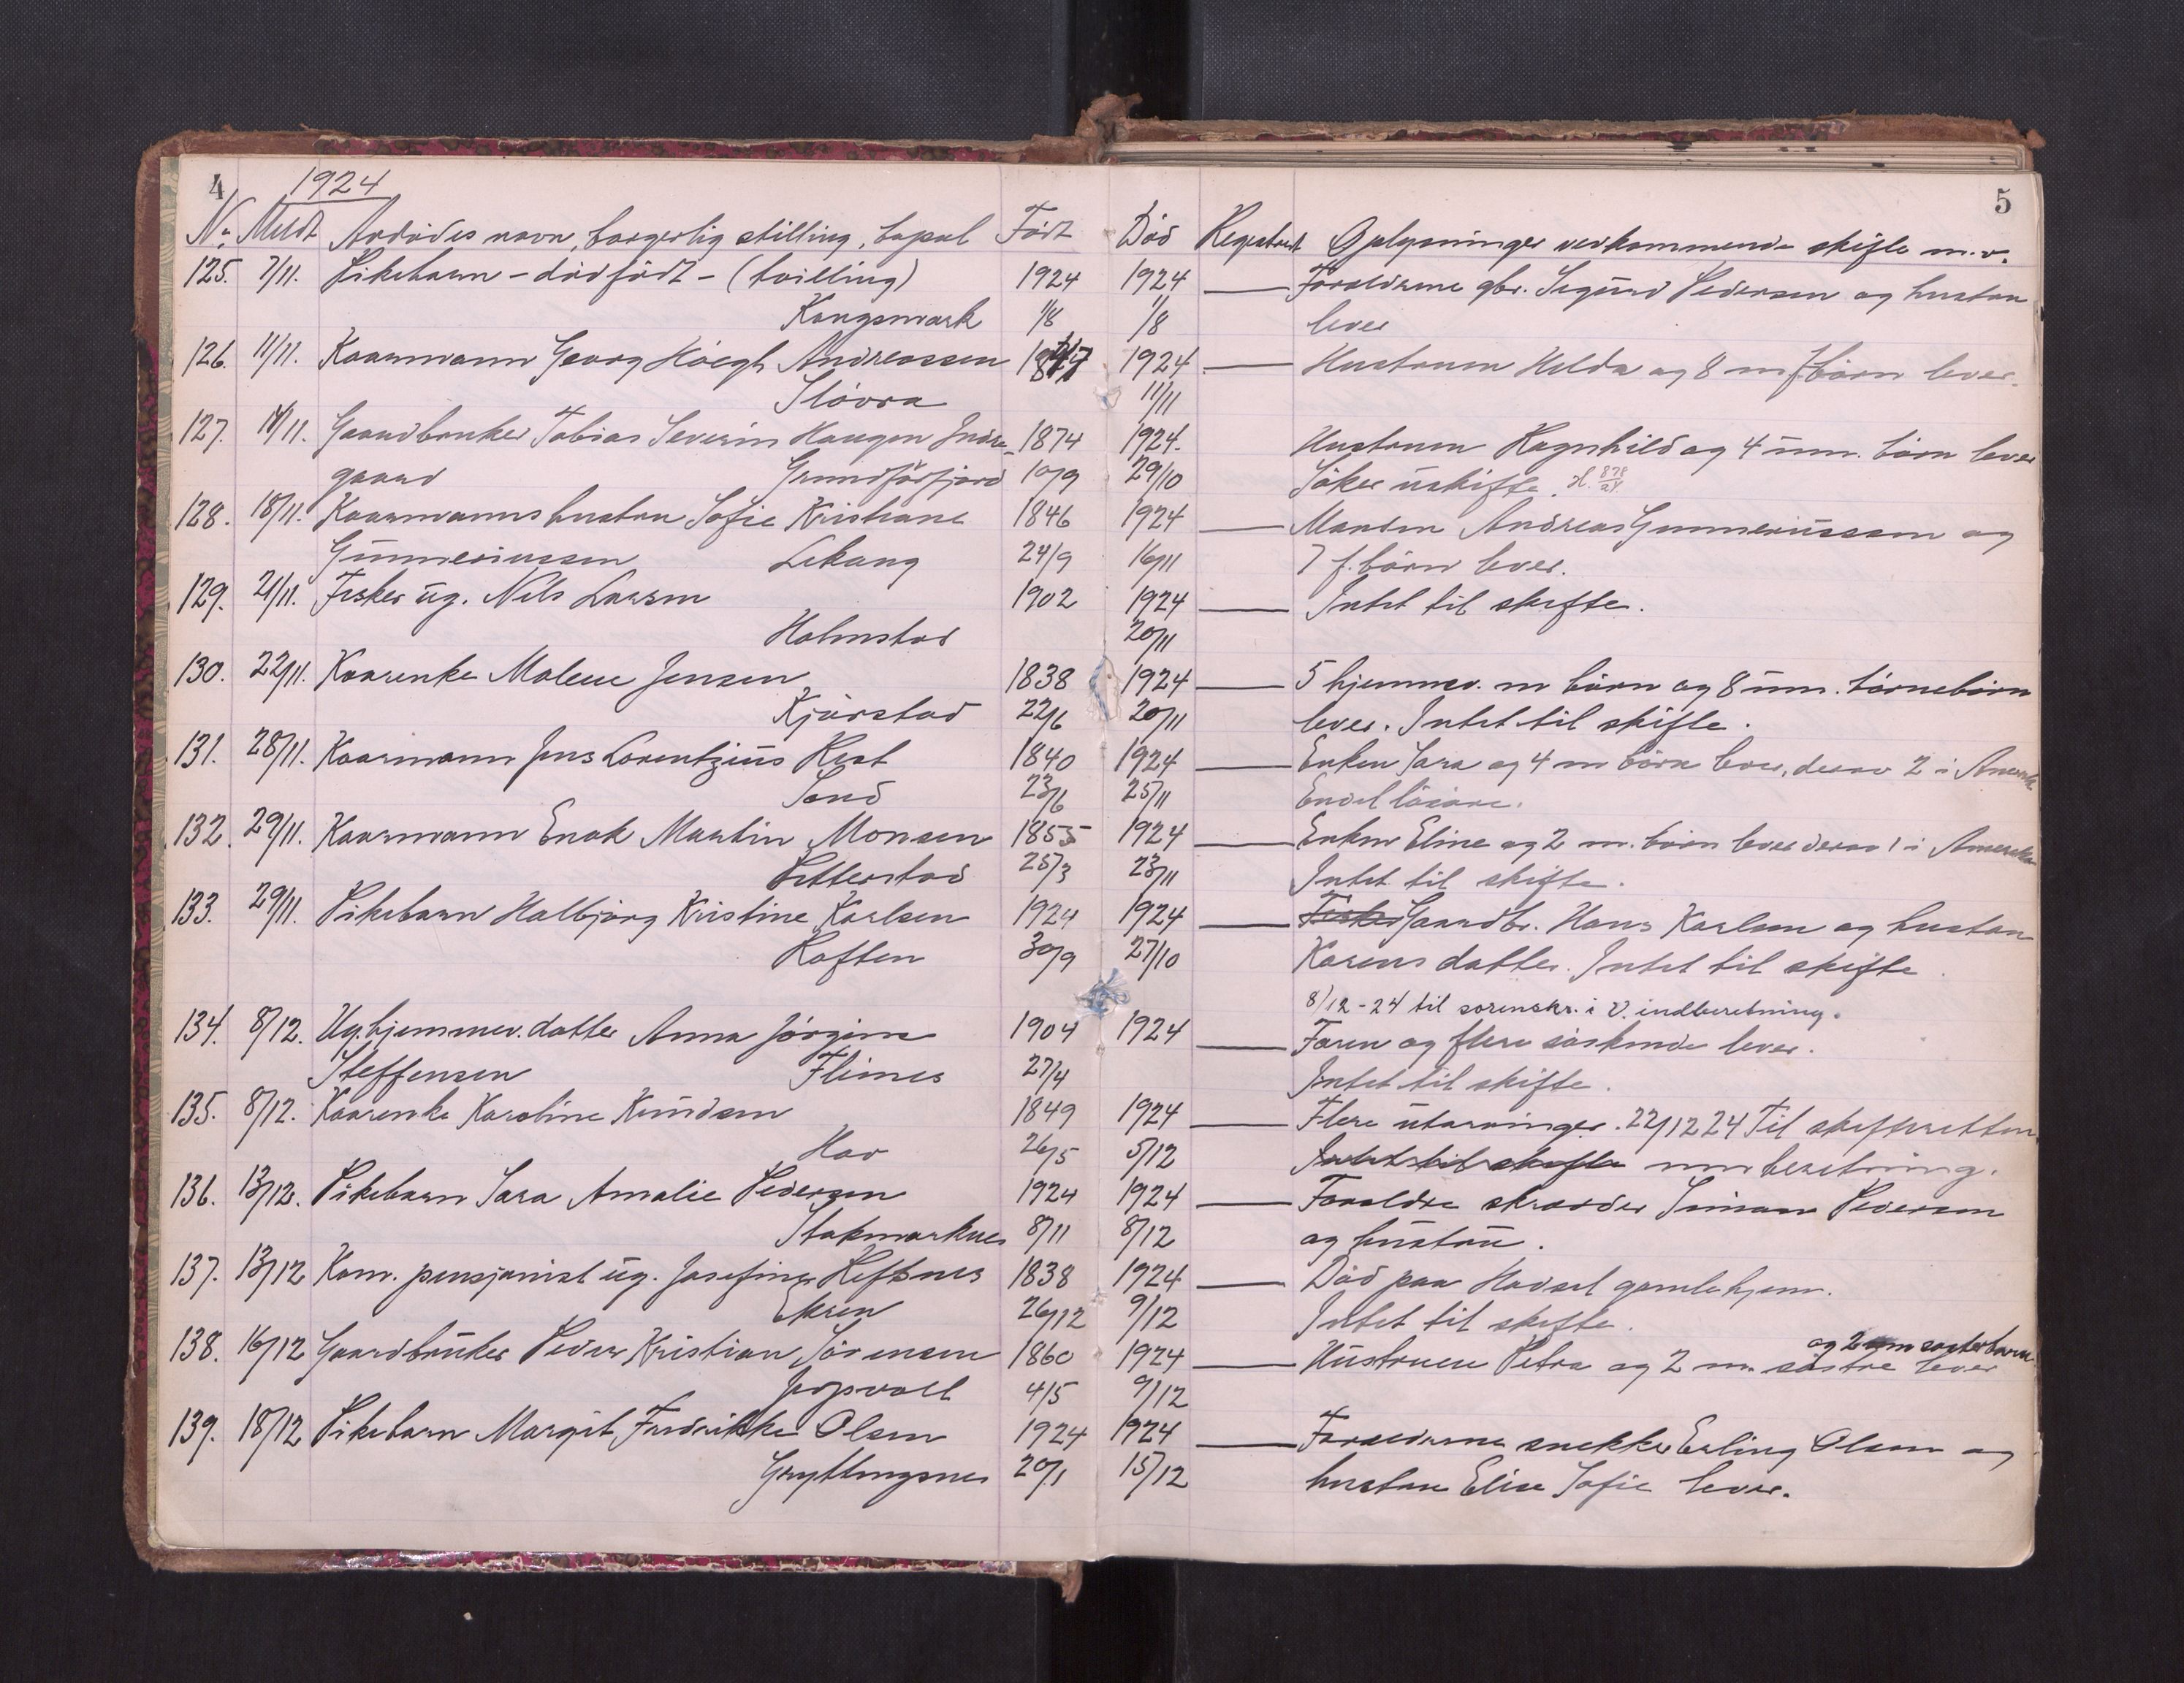 4
1924
5
No. Meldt Avdødes navn, borgerlig stilling, bopæl Født Død Registrert Oplysninger vedkommende skifte m.v.
125. 7/11. Pikebarn - dødfødt - (tvilling) 1924 1924 Forældrene gbr. Sigurd Pedersen og hustru
Kongsmark 1/8 1/8 lever
126. 11/11. Kaarmann Georg Høegh Andreassen 1924 Hustruen Hilda og 8 m. børn lever.
Sløvra 11/11
127. 14/11. Gaardbruker Tobias Severin Haugen Indre- 1874 1924. Hustruen Ragnhild og 4 um. børn lever
gaard Grundførfjord 10/9 29/10 Søker uskifte. H. 878/24
128. 18/11. Kaarmanns hustru Sofie Kristiane 1846 1924 Manden Andreas Gunneriussen og
Gunneriussen Lekang 24/9 16/11 7 f. børn lever.
129. 21/11. Fisker ug. Nils Larsen 1902 1924 Intet til skifte.
Holmstad 20/11
130. 22/11. Kaarenke Malene Jensen 1838 1924 5 hjemmev. m børn og 8 um. børnebørn
Kjørstad 22/6 20/11 lever. Intet til skifte.
131. 28/11. Kaarmann Jens Lorentzius Krat 1840 1924 Enken Sara og 4 m børn lever, derav 2 i Amerika
Sand 23/6 25/11 Endel løsøre.
132. 29/11. Kaarmann Enok Martin Monsen 1855 1924 Enken Eline og 2 m. børn lever derav 1 i Amerika
Fitterstad 25/3 23/11 Intet til skifte.
133. 29/11. Pikebarn Halbjørg Kristine Karlsen 1924 1924 Fisker Gaardbr. Hans Karlsen og hustru
Raften 30/9 27/10 Karens datter. Intet til skifte.
8/12-24 til sorenskr. i V. indberetning.
134. 8/12. Ug. hjemmev. datter Anna Jørgine 1904 1924 Faren og flere søskende lever.
Steffensen Flimes 27/4 Intet til skifte.
135. 8/12. Kaarenke Karoline Knudsen 1849 1924 Flere utarvinger. 22/12 24 Til skifteretten
Hov 26/5 5/12 Intet til skifte um beretning.
136. 13/12. Pikebarn Sara Amalie Pedersen 1924 1924 Forældre skrædder Simon Pedersen
Stokmarknes 8/11 8/12 og hustru.
137. 13/12 Kom. pensjonist ug. Josefine Reffsnes 1838 1924 Død paa Hadsel gamlehjem.
Ekren 26/12 9/12 Intet til skifte.
138. 16/12 Gaardbruker Peder Kristian Sørensen 1860 1924 Hustruen Petra og 2 m. søstre lever
og 2 um søsterbarn
4/5 9/12
139. 18/12 Pikebarn Margit Fredrikke Olsen 1924 1924 Forældrene snekker Erling Olsen og
Gryttingsnes 20/1 15/12 hustru Elise Sofie lever.